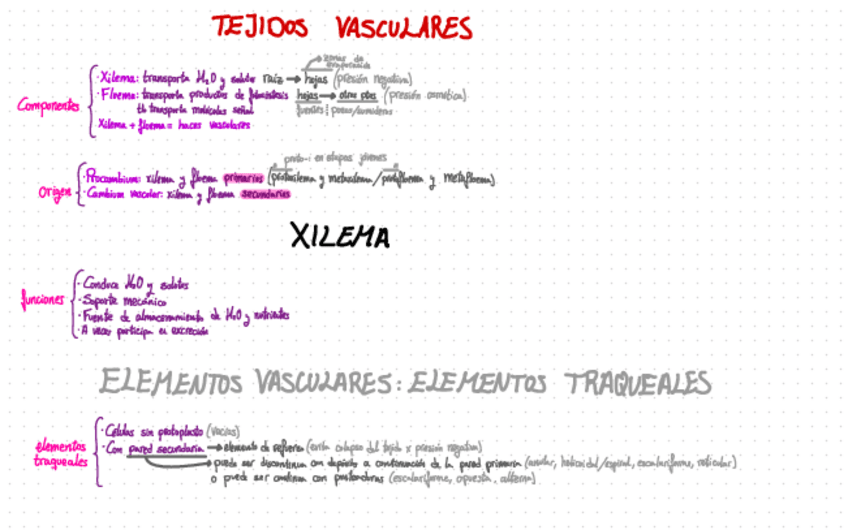 TEJIDOS VASCULARES
zonas de
Componentes
· Xilema: transporta H₂O y solutos raíz → hojas (presión negativa)
· Floema: transporta productos de fotosíntesis hojas → otras ptes (presión osmótica)
tb transporta moléculas señal fuentes
Xilema + floema = haces vasculares
proto- : en etapas jóvenes
Origen
· Procambium: xilema y floema primarios (protoxilema y metaxilema/protofloema y metafloema)
· Cambium vascular: xilema y floema secundarios
XILEMA
funciones
· Conduce H₂O y solutos
· Soporte mecánico
· Fuente de almacenamiento de H₂O y nutrientes
· A veces participa en excreción
ELEMENTOS VASCULARES: ELEMENTOS TRAQUEALES
elementos
traqueales
· Células sin protoplasto (vacías)
· Con pared secundaria → elemento de refuerzo (evita colapso del tejido x presión negativa)
→ puede ser discontinua con depósito a continuación de la pared primaria (anular, helicoidal/espiral, escalariforme, reticular)
o puede ser continua con punteaduras (escalariforme, opuesta, alterna)